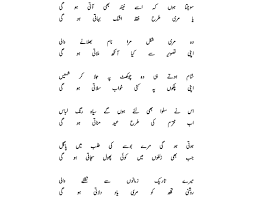 سوچتا ہوں کہ اسے نیند بھی آتی ہو گی
یا مری طرح فقط اشک بہاتی ہو گی
وہ مری شکل مرا نام بھلانے والی
اپنی تصویر سے کیا آنکھ ملاتی ہو گی
شام ہوتے ہی وہ چوکھٹ پہ جلا کر شمعیں
اپنی پلکوں پہ کئی خواب سلاتی ہو گی
اس نے سلوا بھی لئے ہوں گے سیاہ رنگ لباس
اب محرم کی طرح عید مناتی ہو گی
ہوتی ہو گی مرے بوسے کی طلب میں پاگل
جب بھی زلفوں میں کوئی پھول سجاتی ہو گی
میرے تاریک زمانوں سے نکلنے والی
روشنی تجھ کو مری یاد دلاتی ہو گی